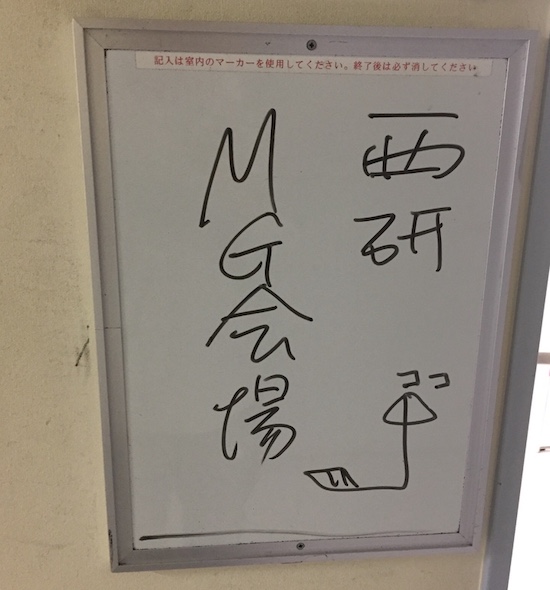 記入は室内のマーカーを使用してください。終了後は必ず消してください
西研
MG会場
ココ